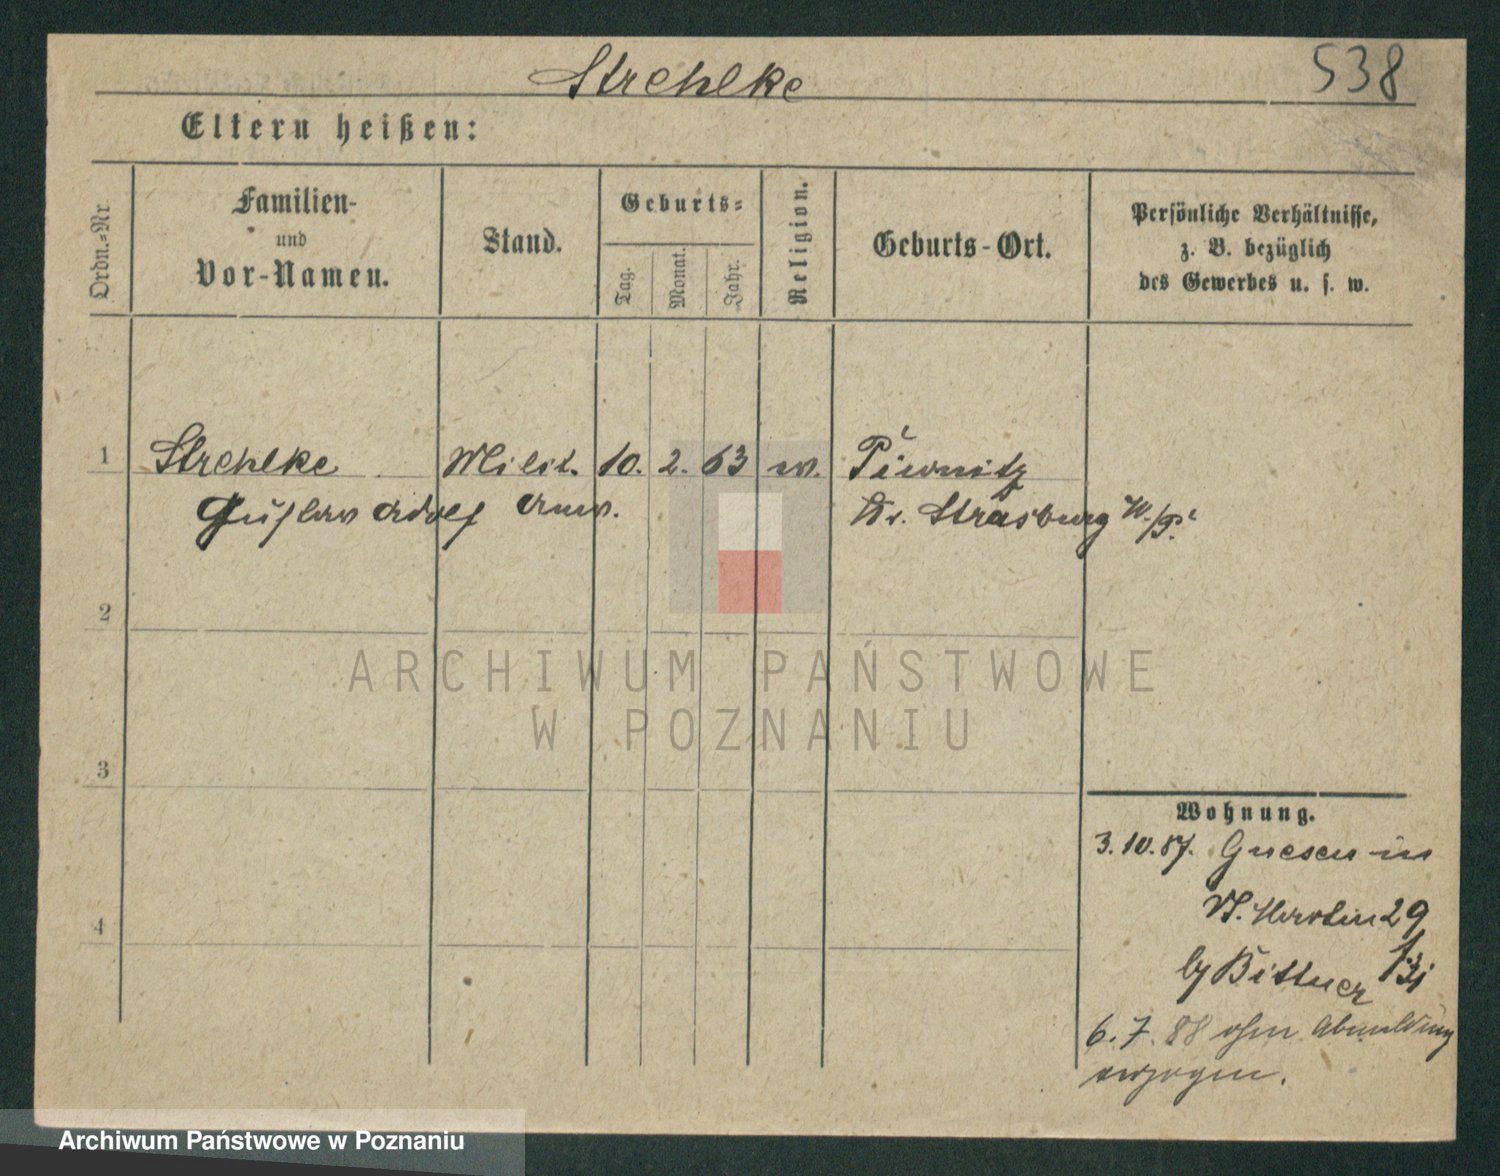 Strehlke
538
Eltern heißen:
Ordn.=Nr.
Familien-
und
Vor-Namen.
Stand.
Geburts=
Tag.
Monat.
Jahr.
Religion.
Geburts-Ort.
Persönliche Verhältnisse,
z. B. bezüglich
des Gewerbes u. s. w.
1 Strehlke Milit. 10. 2. 63 ev. Piwnitz
Gustav Adolf Anw. Kr. Strasburg W./P.
2
ARCHIWUM PAŃSTWOWE
W POZNANIU
3
4
Wohnung.
3.10.87. Gnesen in
St. Martin 29
by Bittner
6.7.88 ohne Abmeldung
verzogen.
Archiwum Państwowe w Poznaniu